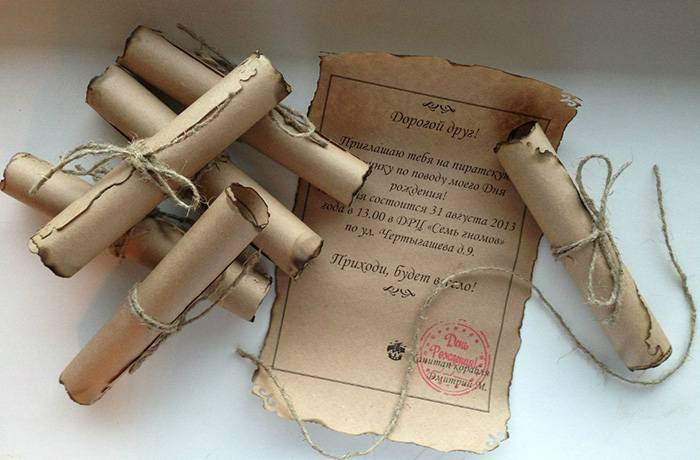 Дорогой друг!
Приглашаю тебя на пиратскую
по поводу моего Дня
рождения!
состоится 31 августа 2013
года в 13.00 в ДРЦ «Семь гномов»
по ул. Чертыгашева д.9.
Приходи, будет весело!
День
Рождения!
Капитан корабля
Дмитрий М.